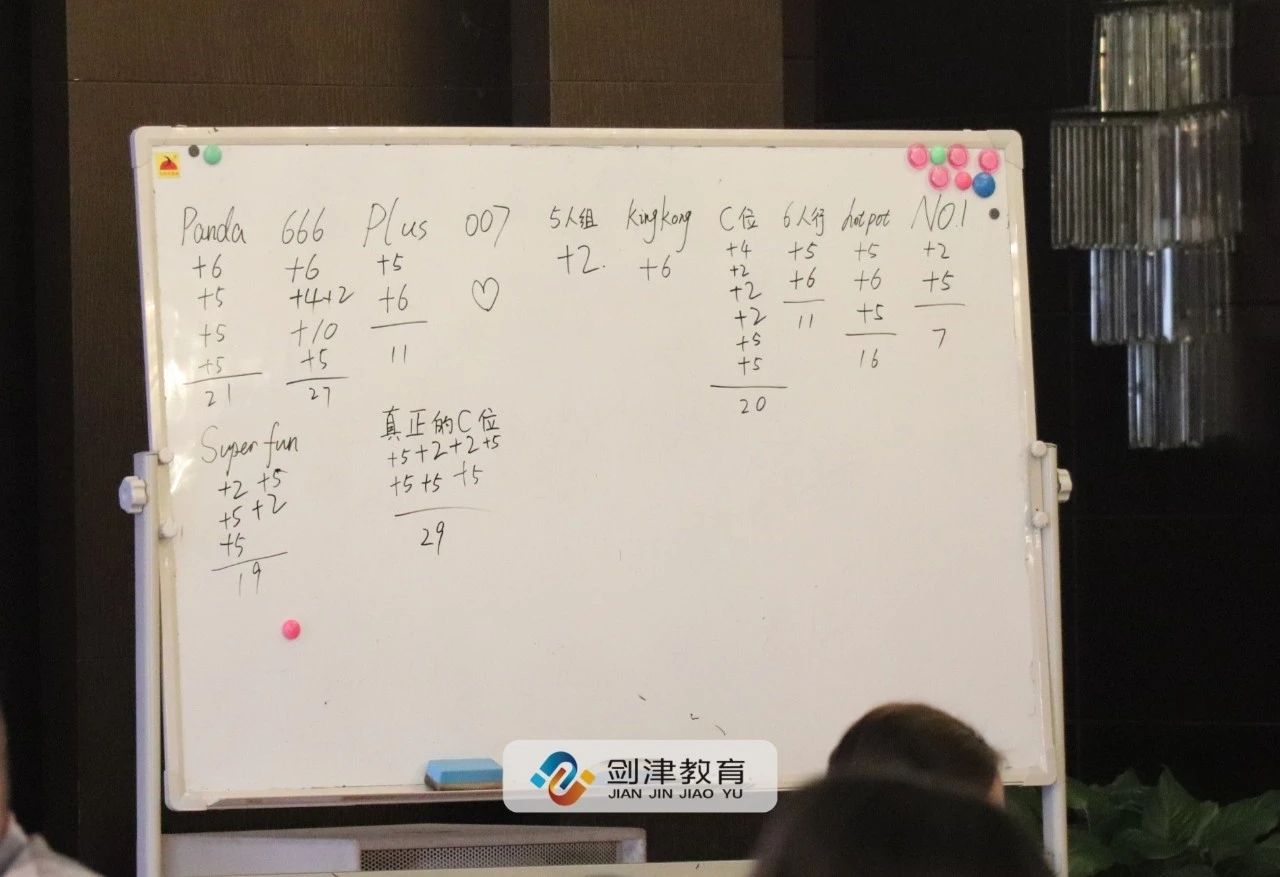 Panda 666 Plus 007 5人组 kingkong C位 6人行 hotpot NO.1
+6 +6 +5 +2. +6 +4 +5 +5 +2
+5 +4+2 +6 ♡ +2 +6 +6 +5
+5 +10 11 +2 11 +5 7
+5 +5 +2 16
21 27 +5
+5
20
Super fun 真正的C位
+2 +5 +5+2+2+5
+5 +2 +5+5+5
+5 29
19
剑津教育
JIAN JIN JIAO YU